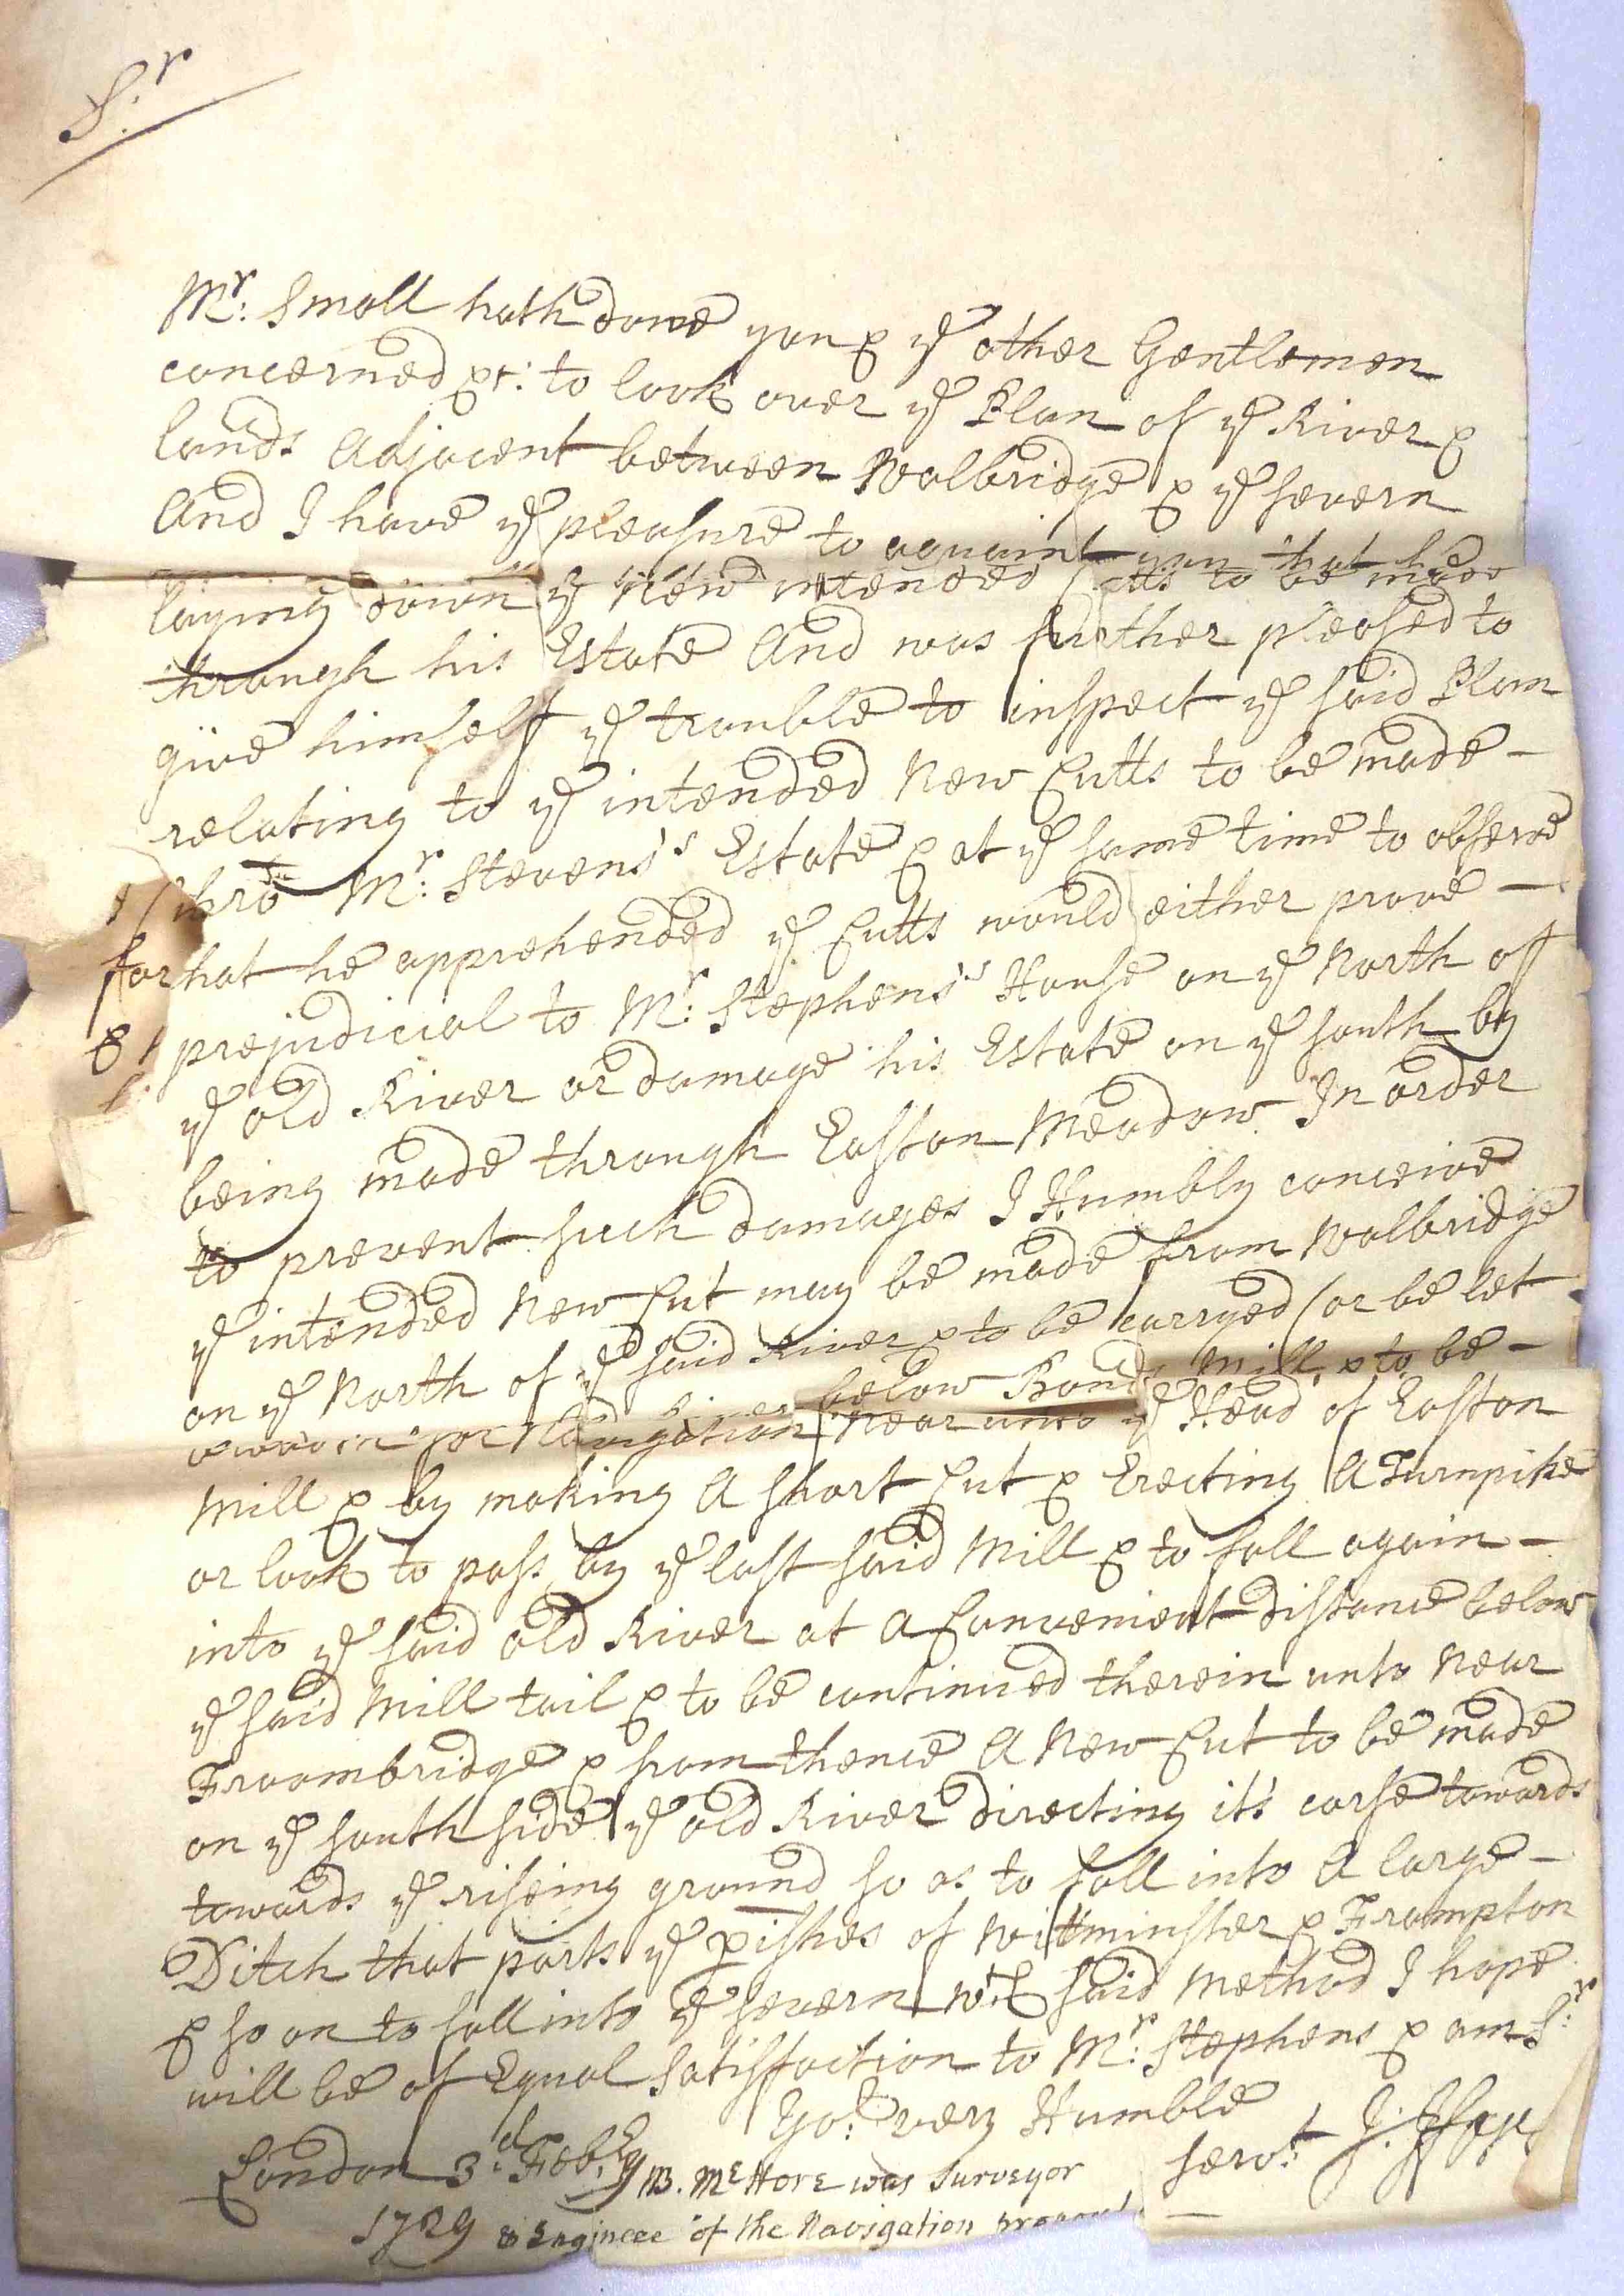 S:r
Mr: Small hath done you & ye other Gentlemen
concerned &c: to look over ye Plan of ye River &
lands Adjacent between Walbridge & ye Severn
And I have ye pleasure to acquaint you that he
laying down ye New intended Cutts to be made
through his Estate And was further pleased to
give himself ye trouble to inspect ye said Plan
relating to ye intended New Cutts to be made –
thro Mr: Stevens's Estate & at ye same time to observe
that he apprehended ye Cutts would either prove –
prejudicial to Mr: Stephens's House on ye North of
ye old River or damage his Estate on ye South by
being made through Easton Meadow. In order
to prevent such damages I Humbly conceive
ye intended New Cut may be made from Walbridge
on ye North of ye said River & to be carryed (or be let
below Bonds Mill, & to be –
Navigation Near unto ye Head of Easton
Mill & by making A short Cut & Erecting A Turnpike
or lock to pass by ye last said Mill & to fall again –
into ye said old River at A Convenient distance below
ye said Mill tail & to be continued therein unto Near
Froombridge & from thence A New Cut to be made
on ye South side ye old River directing it's corse towards
towards ye riseing ground so as to fall into A large –
Ditch that parts ye pishes of Witminster & Frampton
& so on to fall into ye Severn wch said Method I hope
will be of Equal Satisfaction to Mr: Stephens & am Sr:
Yor: very Humble
Servt:
London 3d: Feb:ry
1729
NB. Mr Hore was Surveyor
& Engineer of the Navigation